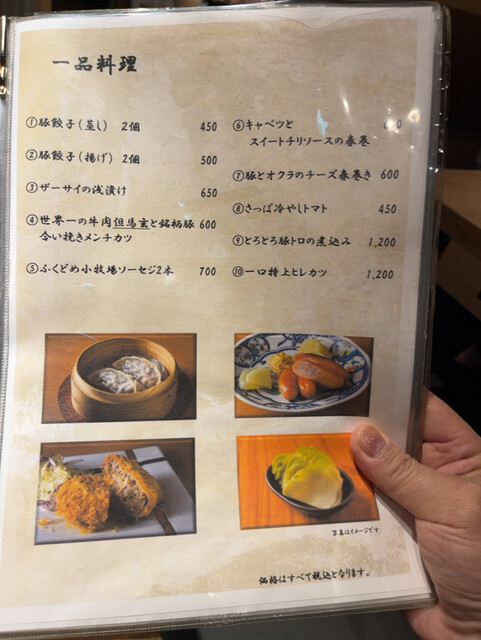 一品料理
①豚餃子(蒸し) 2個 450
②豚餃子(揚げ) 2個 500
③ザーサイの浅漬け 650
④世界一の牛肉但馬玄と銘柄豚 600
合い挽きメンチカツ
⑤ふくどめ小牧場ソーセジ2本 700
⑥キャベツと
スイートチリソースの春巻
⑦豚とオクラのチーズ春巻き 600
⑧さっぱ冷やしトマト 450
⑨とろとろ豚トロの煮込み 1,200
⑩一口特上ヒレカツ 1,200
写真はイメージです
価格はすべて税込となります。